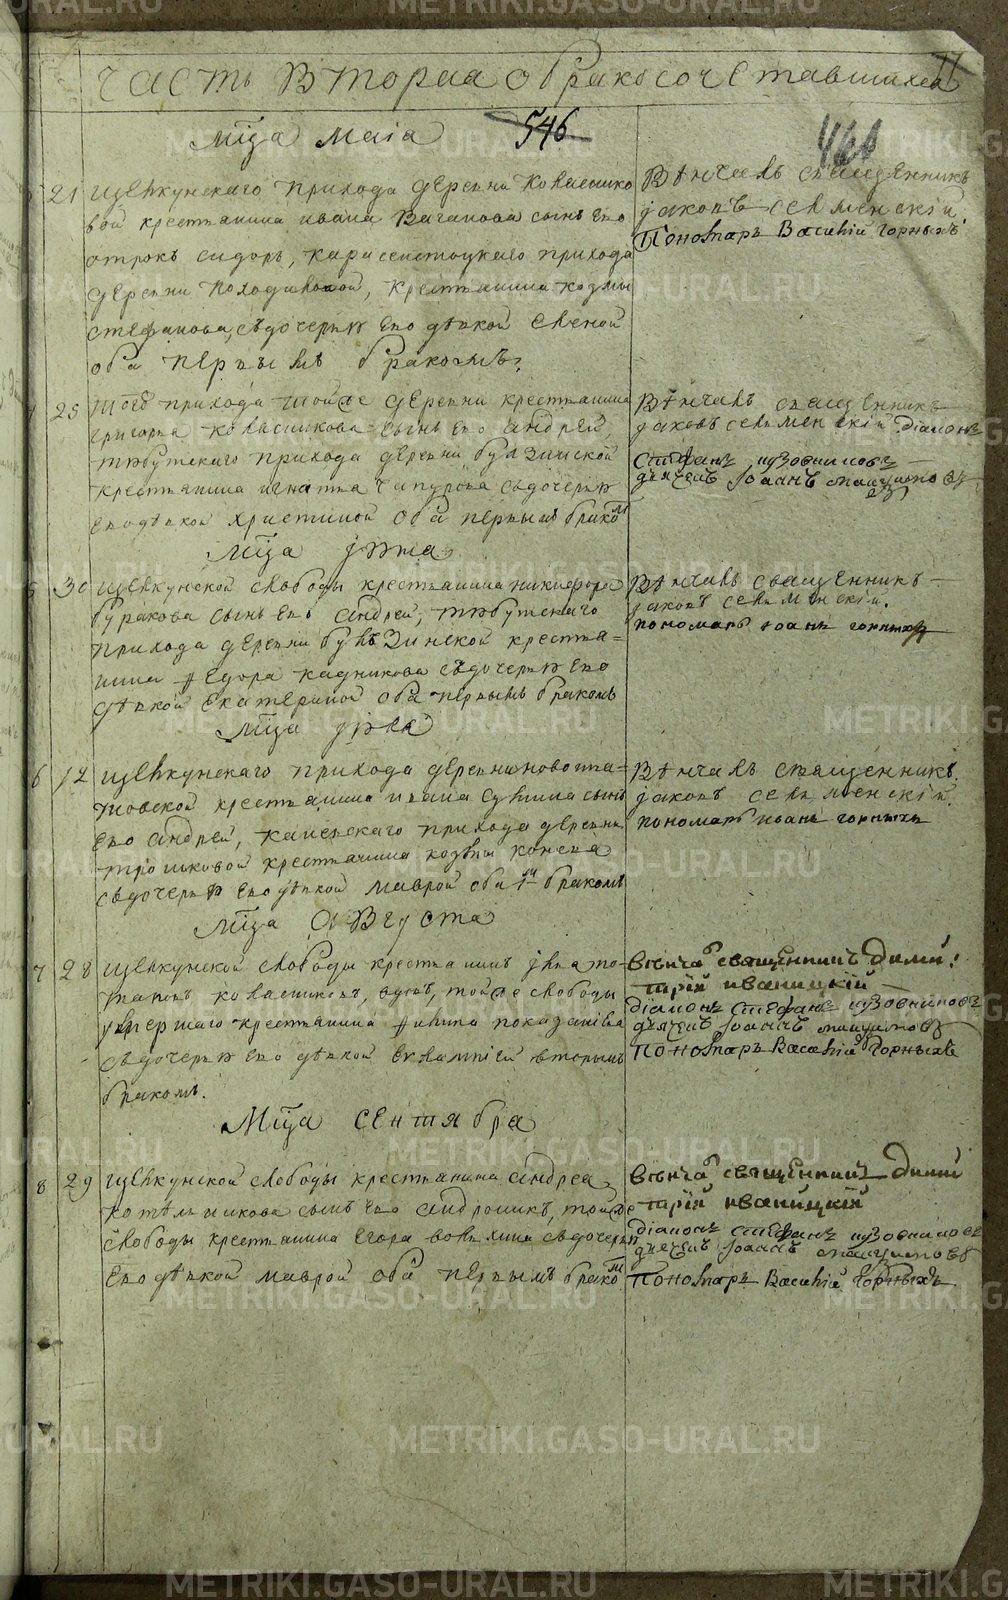 часть вторая о бракосочетавшихся
Мца маиа
546
21 щелкунскаго прихода деревни Коласнико
вой крестьянина ивана Ваганова сынъ ево
отрокъ сидоръ, карасеистоцкаго прихода
деревни Походиловой, крестьянина козмы
стефанова, съдочерью ево дѣвкой еленой
оба первымъ бракомъ,
Вѣнчалъ священникъ
Іаковъ селменскій
Пономарь Василій Горныхъ
25 того прихода тойже деревни крестьянина
григорья коласникова сынъ ево андрей,
крестьянина игнатья чапурова съдочерью
ево дѣвкой христиной оба первымъ бракомъ
Вѣнчалъ священникъ
Іаковъ селменскій діаконъ
Стефанъ кузовниковъ
дьячекъ Іоаннъ
Мца Іюня
30 щелкунской слободы крестьянина никифора
буракова сынъ ево андрей,
прихода деревни булзинской крестья=
нина Федора кадникова съдочерью ево
дѣвкой екатериной оба первымъ бракомъ
Вѣнчалъ священникъ
Іаковъ селменскій.
пономарь Іоанъ горныхъ
Мца Іюля
6 12 щелкунскаго прихода деревни новоипа=
товской крестьянина ивана сына
ево андрей, каменскаго прихода деревни
крестьянина козмы конева
съдочерью ево дѣвкой маврой оба 1м бракомъ
Вѣнчалъ священникъ.
Іаковъ селменскій.
пономарь иванъ горныхъ
Мца Августа
7 28 щелкунской слободы крестьянинъ
коласниковъ, вдовъ, тойже слободы
умершаго крестьянина
съдочерью ево дѣвкой евлампіей вторымъ
бракомъ.
вѣнча священникъ Дими:
трій иваницкій
діаконъ Стефанъ кузовниковъ
дьячекъ Іоаннъ
Пономарь Василій Горныхъ
Мца сентября
8 29 щелкунской слободы крестьянина андрея
котельникова сынъ ево андроникъ, тойже
слободы крестьянина егора съдочерью
ево дѣвкой маврой оба первымъ бракомъ
вѣнча священникъ Дими
трій иваницкій
діаконъ Стефанъ кузовниковъ
дьячекъ Іоаннъ
Пономарь Василій Горныхъ
METRIKI.GASO-URAL.RU